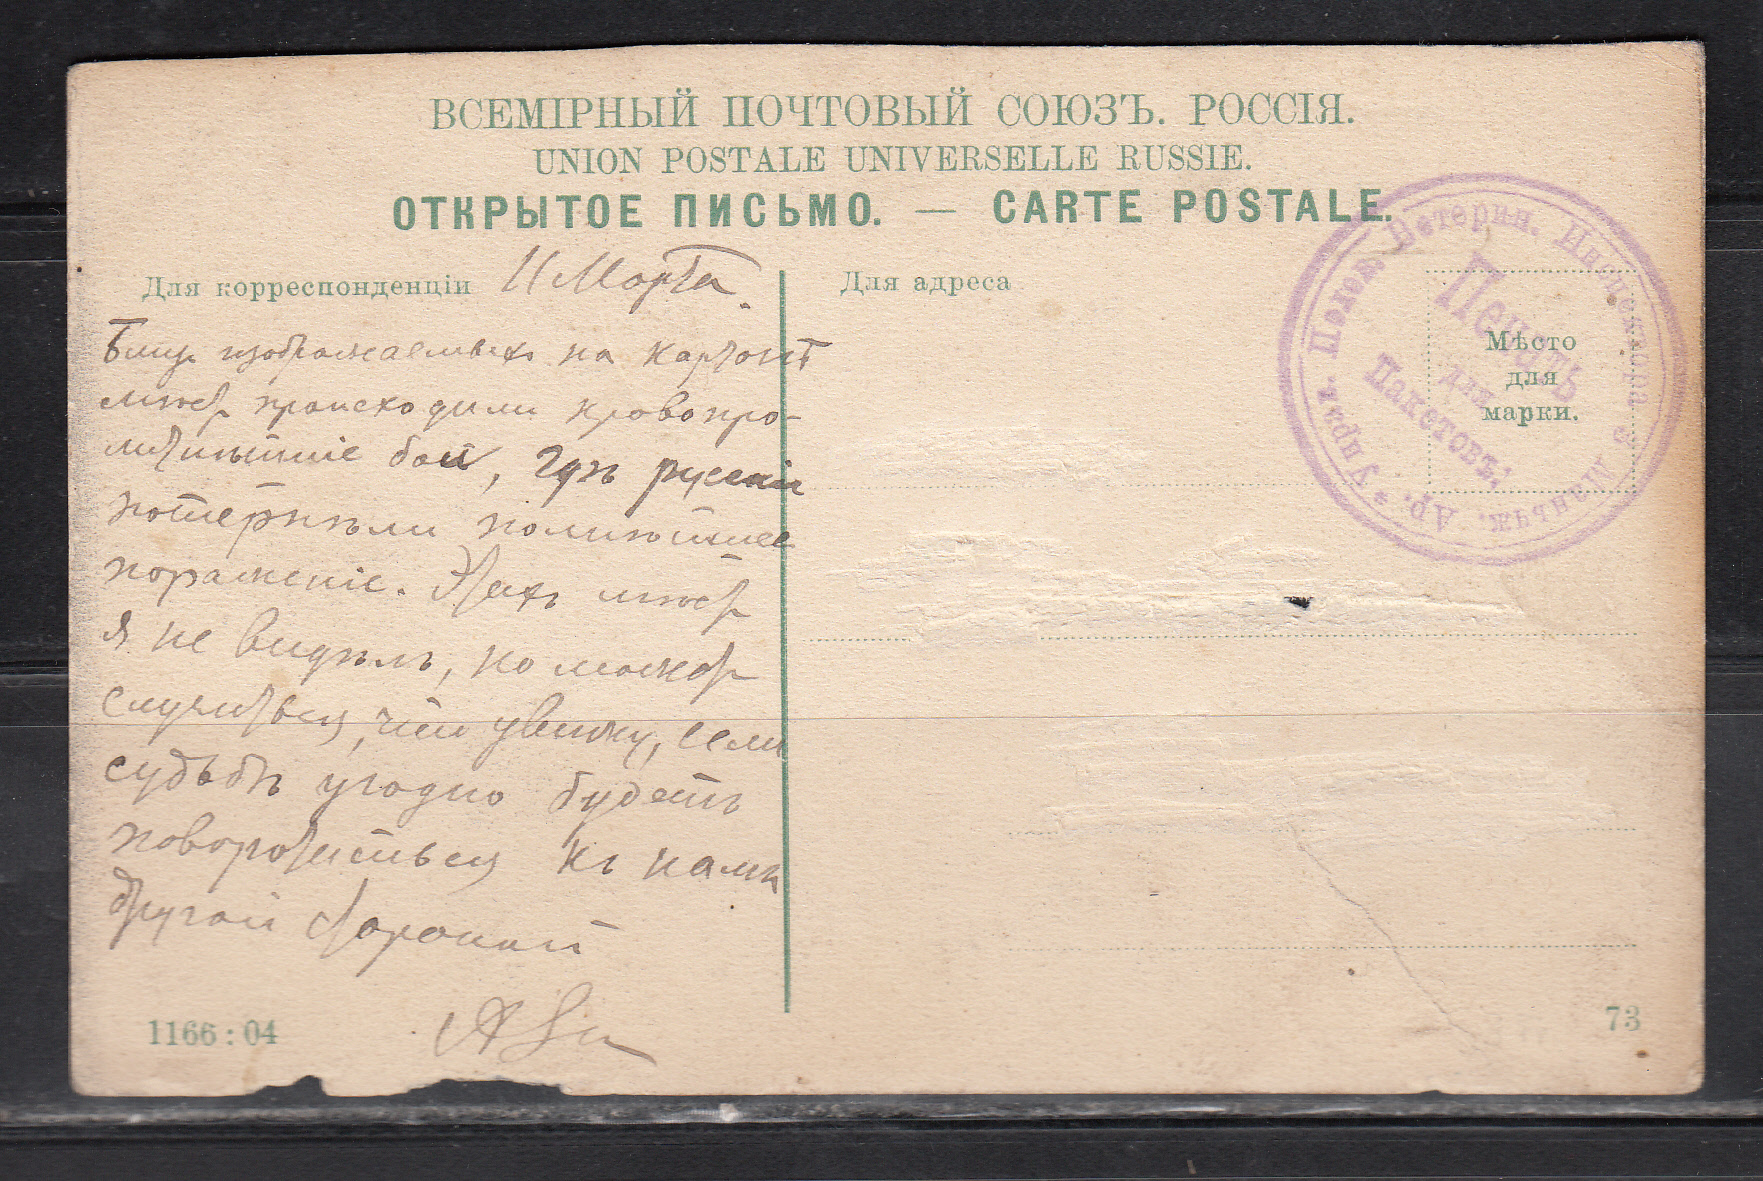 ВСЕМІРНЫЙ ПОЧТОВЫЙ СОЮЗЪ. РОССІЯ.
UNION POSTALE UNIVERSELLE RUSSIE.
ОТКРЫТОЕ ПИСЬМО. — CARTE POSTALE.
Для корреспонденціи
11 Марта.
Близ изображаемыхъ на карточкѣ
мѣстъ происходили кровопро-
литнѣйшіе бои, гдѣ русскіе
потерпѣли полнѣйшее
пораженіе. Этихъ мѣстъ
я не видѣлъ, но может
случиться, что увижу, если
судьбѣ угодно будетъ
поворотиться къ намъ
другой стороной
1166 : 04
Для адреса
Мѣсто
для
марки.
Управ. Полев. Ветерин. Инспектора 3 Маньчж. Ар. *
Печать
для
Пакетовъ.
73